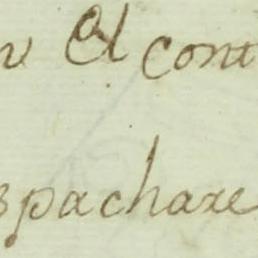 El cont
spachare